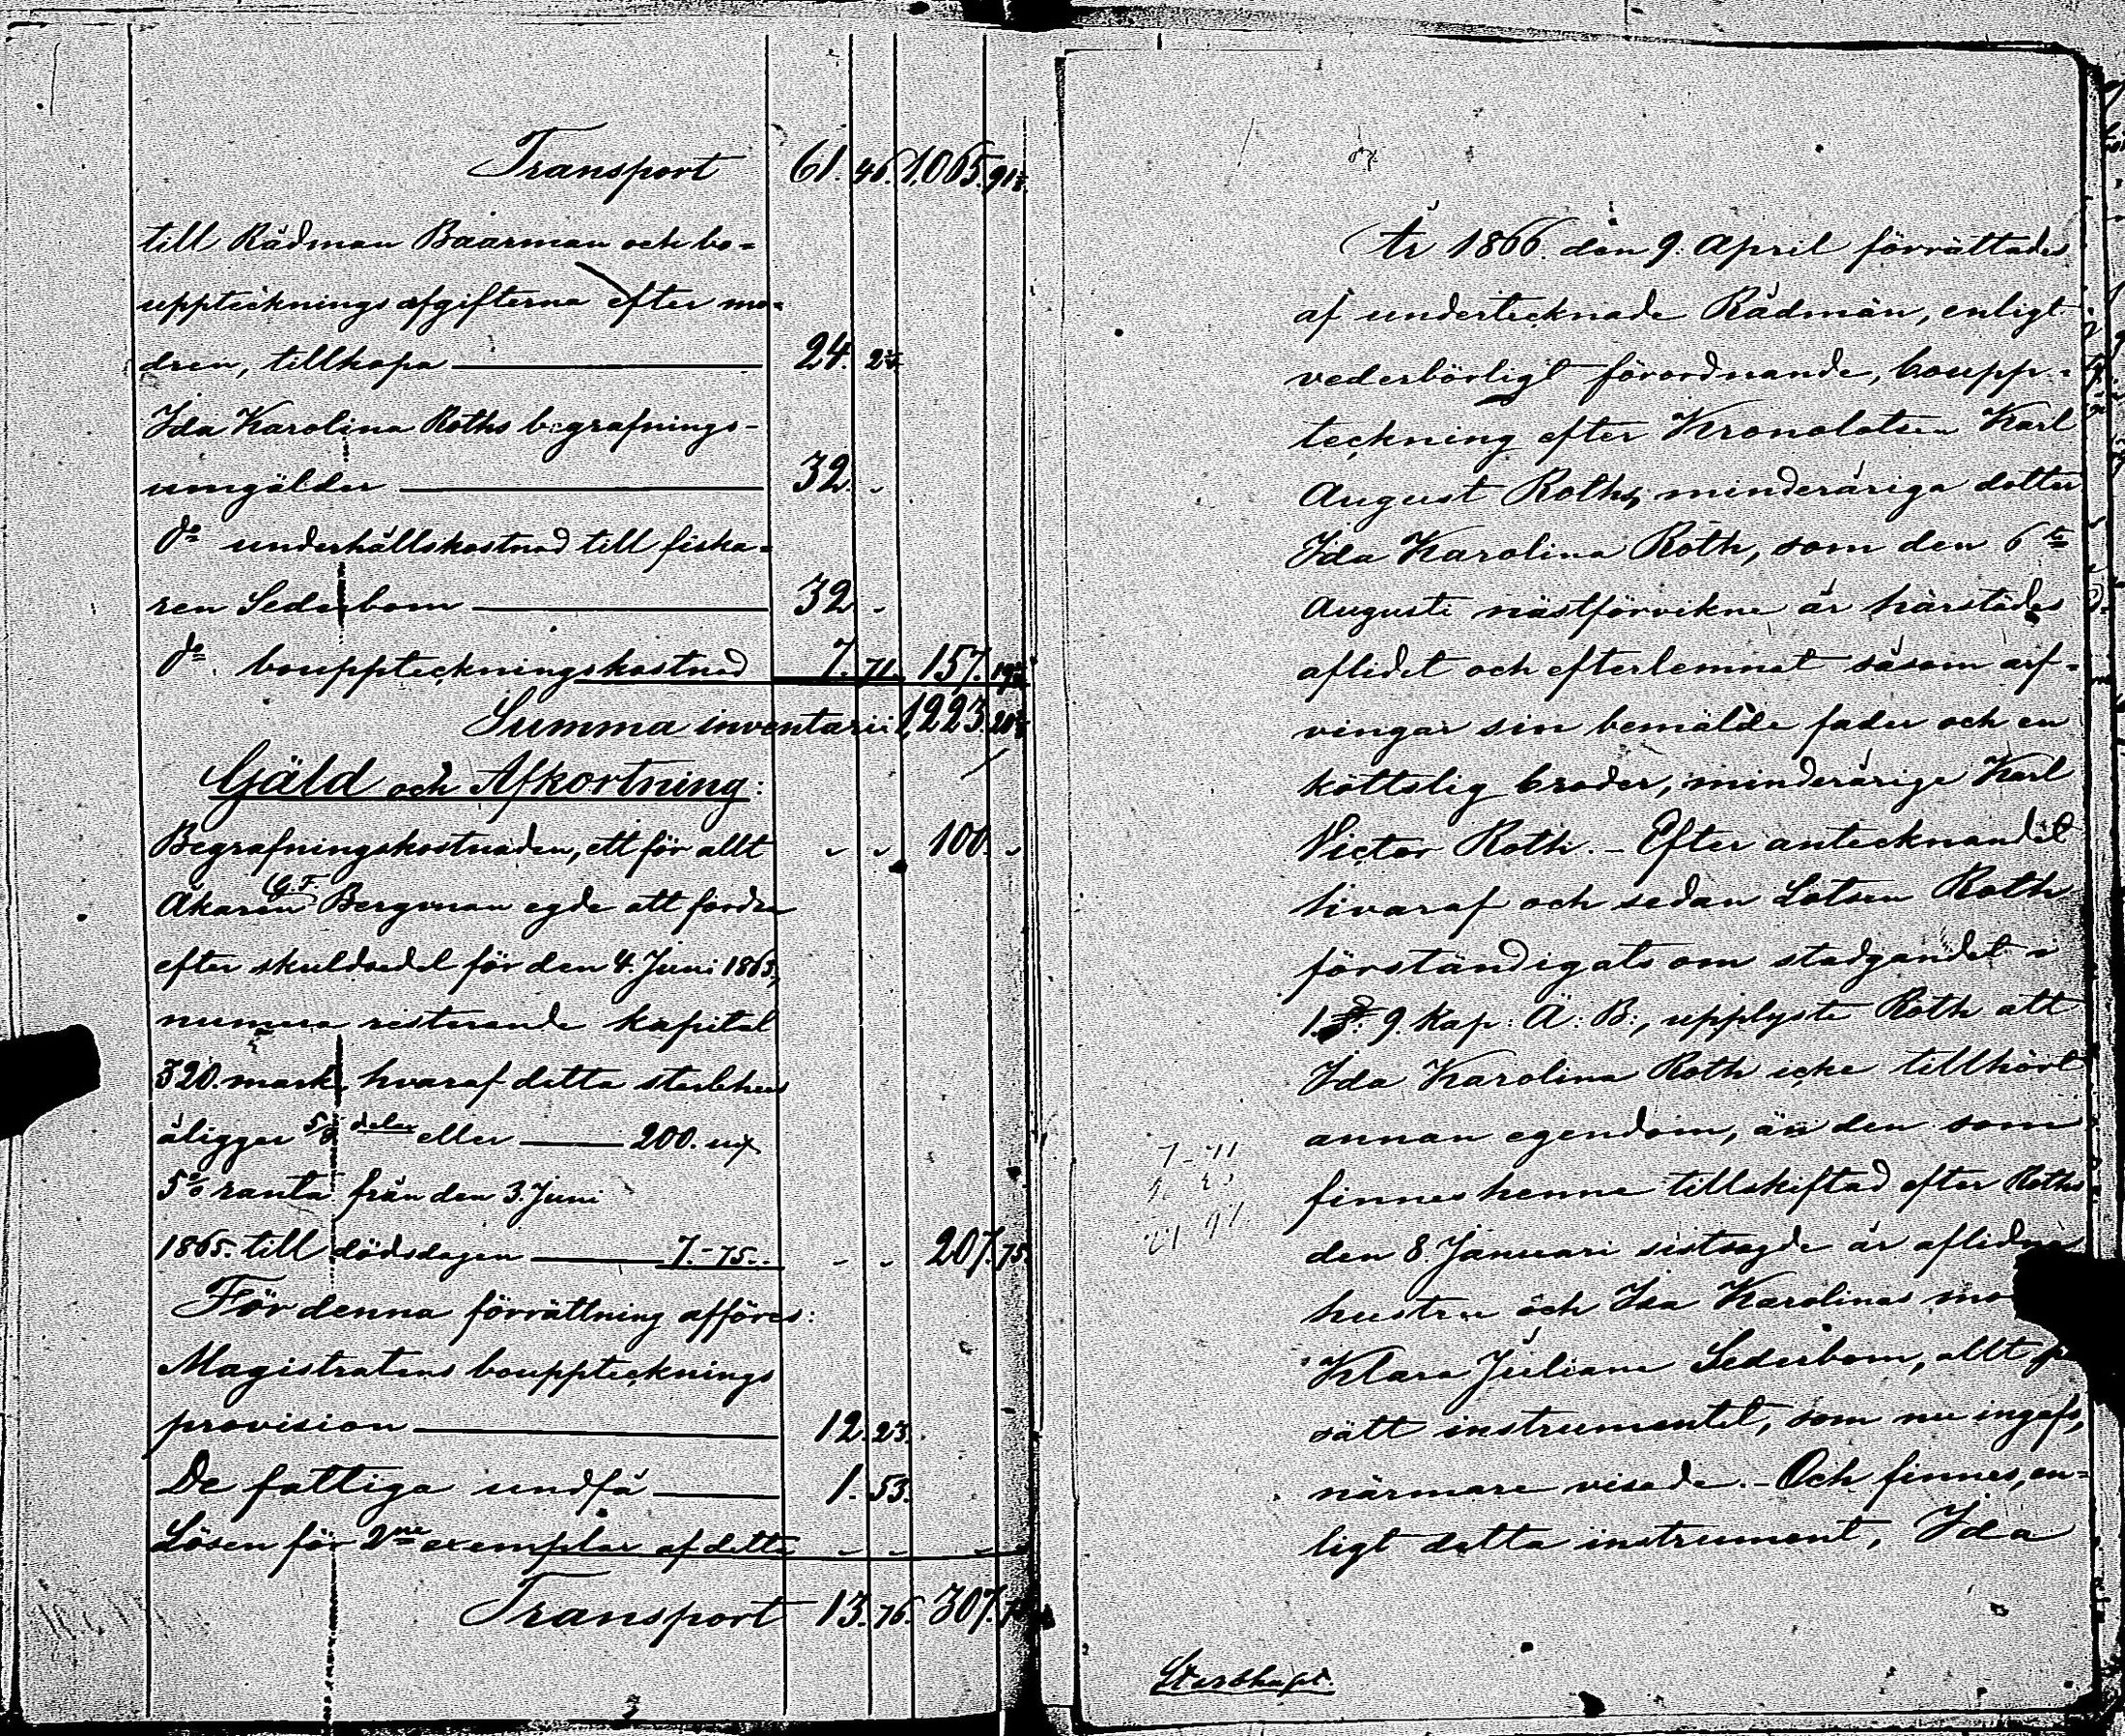 Transport 61. 46. 1,065. 91½
till Rådman Baarman och bo-
uppteckningsafgifterna efter mo-
dren, tillhopa 24. 2
Ida Karolina Roths begrafnings-
umgälder 32. -
do underhållskostnad till fiska-
ren Sederbom 32. -
do bouppteckningskostnad 7. 71. 157. 19
Summa inventarii: 1,223. 20
Gäld och Afkortning:
Begrafningskostnaden, ett för allt - - 100. -
Åkaren G. F. Bergman egde att fordra
efter skuldsedel för den 4. Juni 1865,
numera resterande kapital
320. mark, hvaraf detta sterbhus
åligger 5/8 delar eller 200. mk
5% ränta från den 3. Juni
1865. till dödsdagen 7.-75. - - 207. 75.
För denna förrättning afföres:
Magistratens bouppteckningsprovision
provision 12. 23.
De fattiga undfå 1. 53.
Lösen för 2ne exemplar af detta - - -
Transport 13. 76. 307. 75
År 1866. den 9. April förrättades
af undertecknade Rådmän, enligt
vederbörligt förordnande, boupp-
teckning efter Kronolotsen Karl
August Roths minderåriga dotter
Ida Karolina Roth, som den 6te
Augusti nästförvikne år härstädes
aflidit och efterlemnat såsom arf-
vingar sin bemälde fader och en
köttslig broder, minderårige Karl
Victor Roth. - Efter antecknandet
hvaraf och sedan Lotsen Roth
förständigats om stadgandet i
1. §. 9 Kap: Ä: B:, upplyste Roth att
Ida Karolina Roth icke tillhört
annan egendom, än den som
finnes henne tillskiftad efter Roths
den 8. Januari sistsagde år aflidna
hustru och Ida Karolinas mo
Klara Juliana Sederbom, allt på
sätt instrumentet, som nu ingafs,
närmare visade. - Och finnes, en-
ligt detta instrument, Ida
7-71